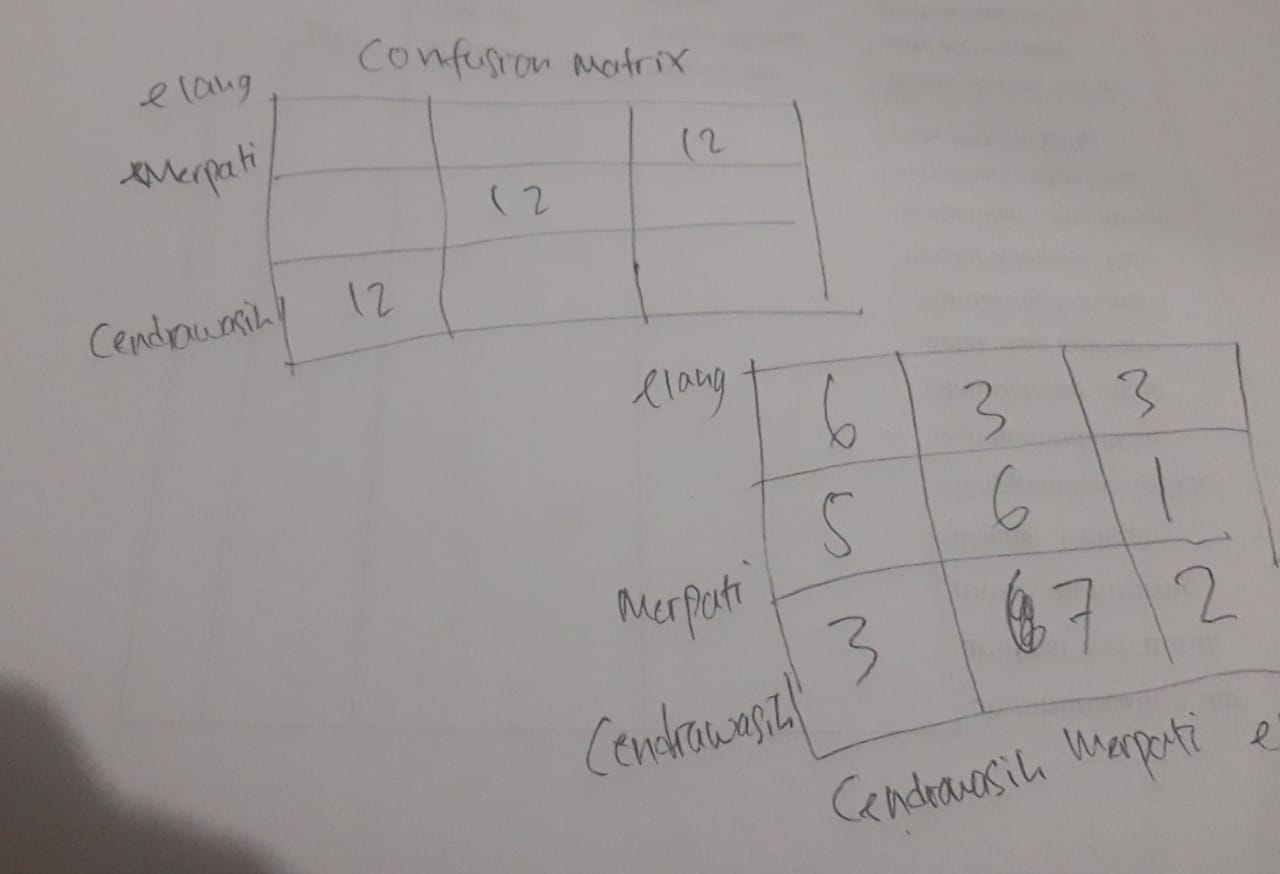 Confusion Matrix
elang
Merpati 12
12
Cendrawasih 12
elang 6 3 3
5 6 1
Merpati
3 7 2
Cendrawasih
Cendrawasih Merpati e